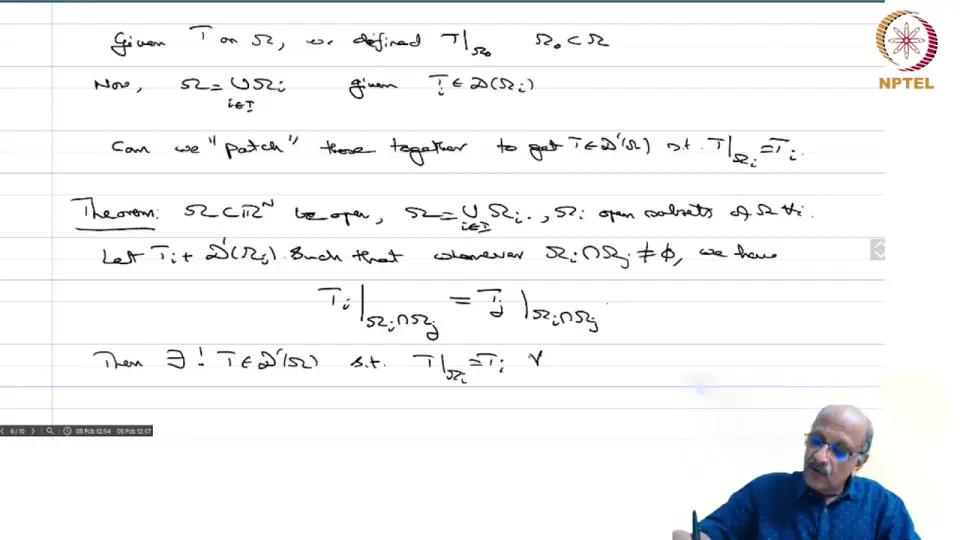 Given T on Ω, we defined T|_Ω₀ Ω₀ ⊂ Ω
NPTEL
Now, Ω = ∪_{i∈I} Ω_i given T_i ∈ D(Ω_i)
Can we "patch" these together to get T ∈ D'(Ω) s.t. T|_{Ω_i} = T_i.
Theorem: Ω ⊂ ℝ^N be open, Ω = ∪_{i∈I} Ω_i., Ω_i open subsets of Ω ∀i.
Let T_i ∈ D'(Ω_i). Such that whenever Ω_i ∩ Ω_j ≠ φ, we have
T_i|_{Ω_i∩Ω_j} = T_j|_{Ω_i∩Ω_j}
Then ∃! T ∈ D'(Ω) s.t. T|_{Ω_i} = T_i ∀
6 / 10 05 Feb 12:54 05 Feb 12:57